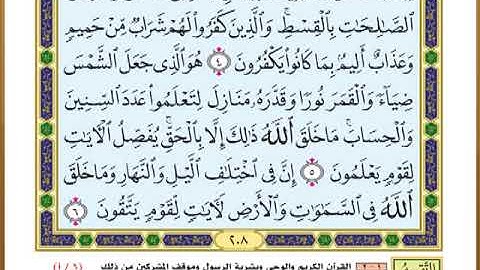 الصَّـٰلِحَـٰتِ بِالْقِسْطِ ۚ وَالَّذِينَ كَفَرُوا لَهُمْ شَرَابٌ مِّنْ حَمِيمٍ
وَعَذَابٌ أَلِيمٌۢ بِمَا كَانُوا يَكْفُرُونَ ٤ هُوَ الَّذِى جَعَلَ الشَّمْسَ
ضِيَآءً وَالْقَمَرَ نُورًا وَقَدَّرَهُۥ مَنَازِلَ لِتَعْلَمُوا عَدَدَ السِّنِينَ
وَالْحِسَابَ ۚ مَا خَلَقَ اللَّهُ ذَٰلِكَ إِلَّا بِالْحَقِّ ۚ يُفَصِّلُ الْـَٔايَـٰتِ
لِقَوْمٍ يَعْلَمُونَ ٥ إِنَّ فِى اخْتِلَـٰفِ الَّيْلِ وَالنَّهَارِ وَمَا خَلَقَ
اللَّهُ فِى السَّمَـٰوَٰتِ وَالْأَرْضِ لَـَٔايَـٰتٍ لِّقَوْمٍ يَتَّقُونَ ٦
٢٠٨
القرآن الكريم والوحي وبشرية الرسول وموقف المشركين من ذلك (١/٦)